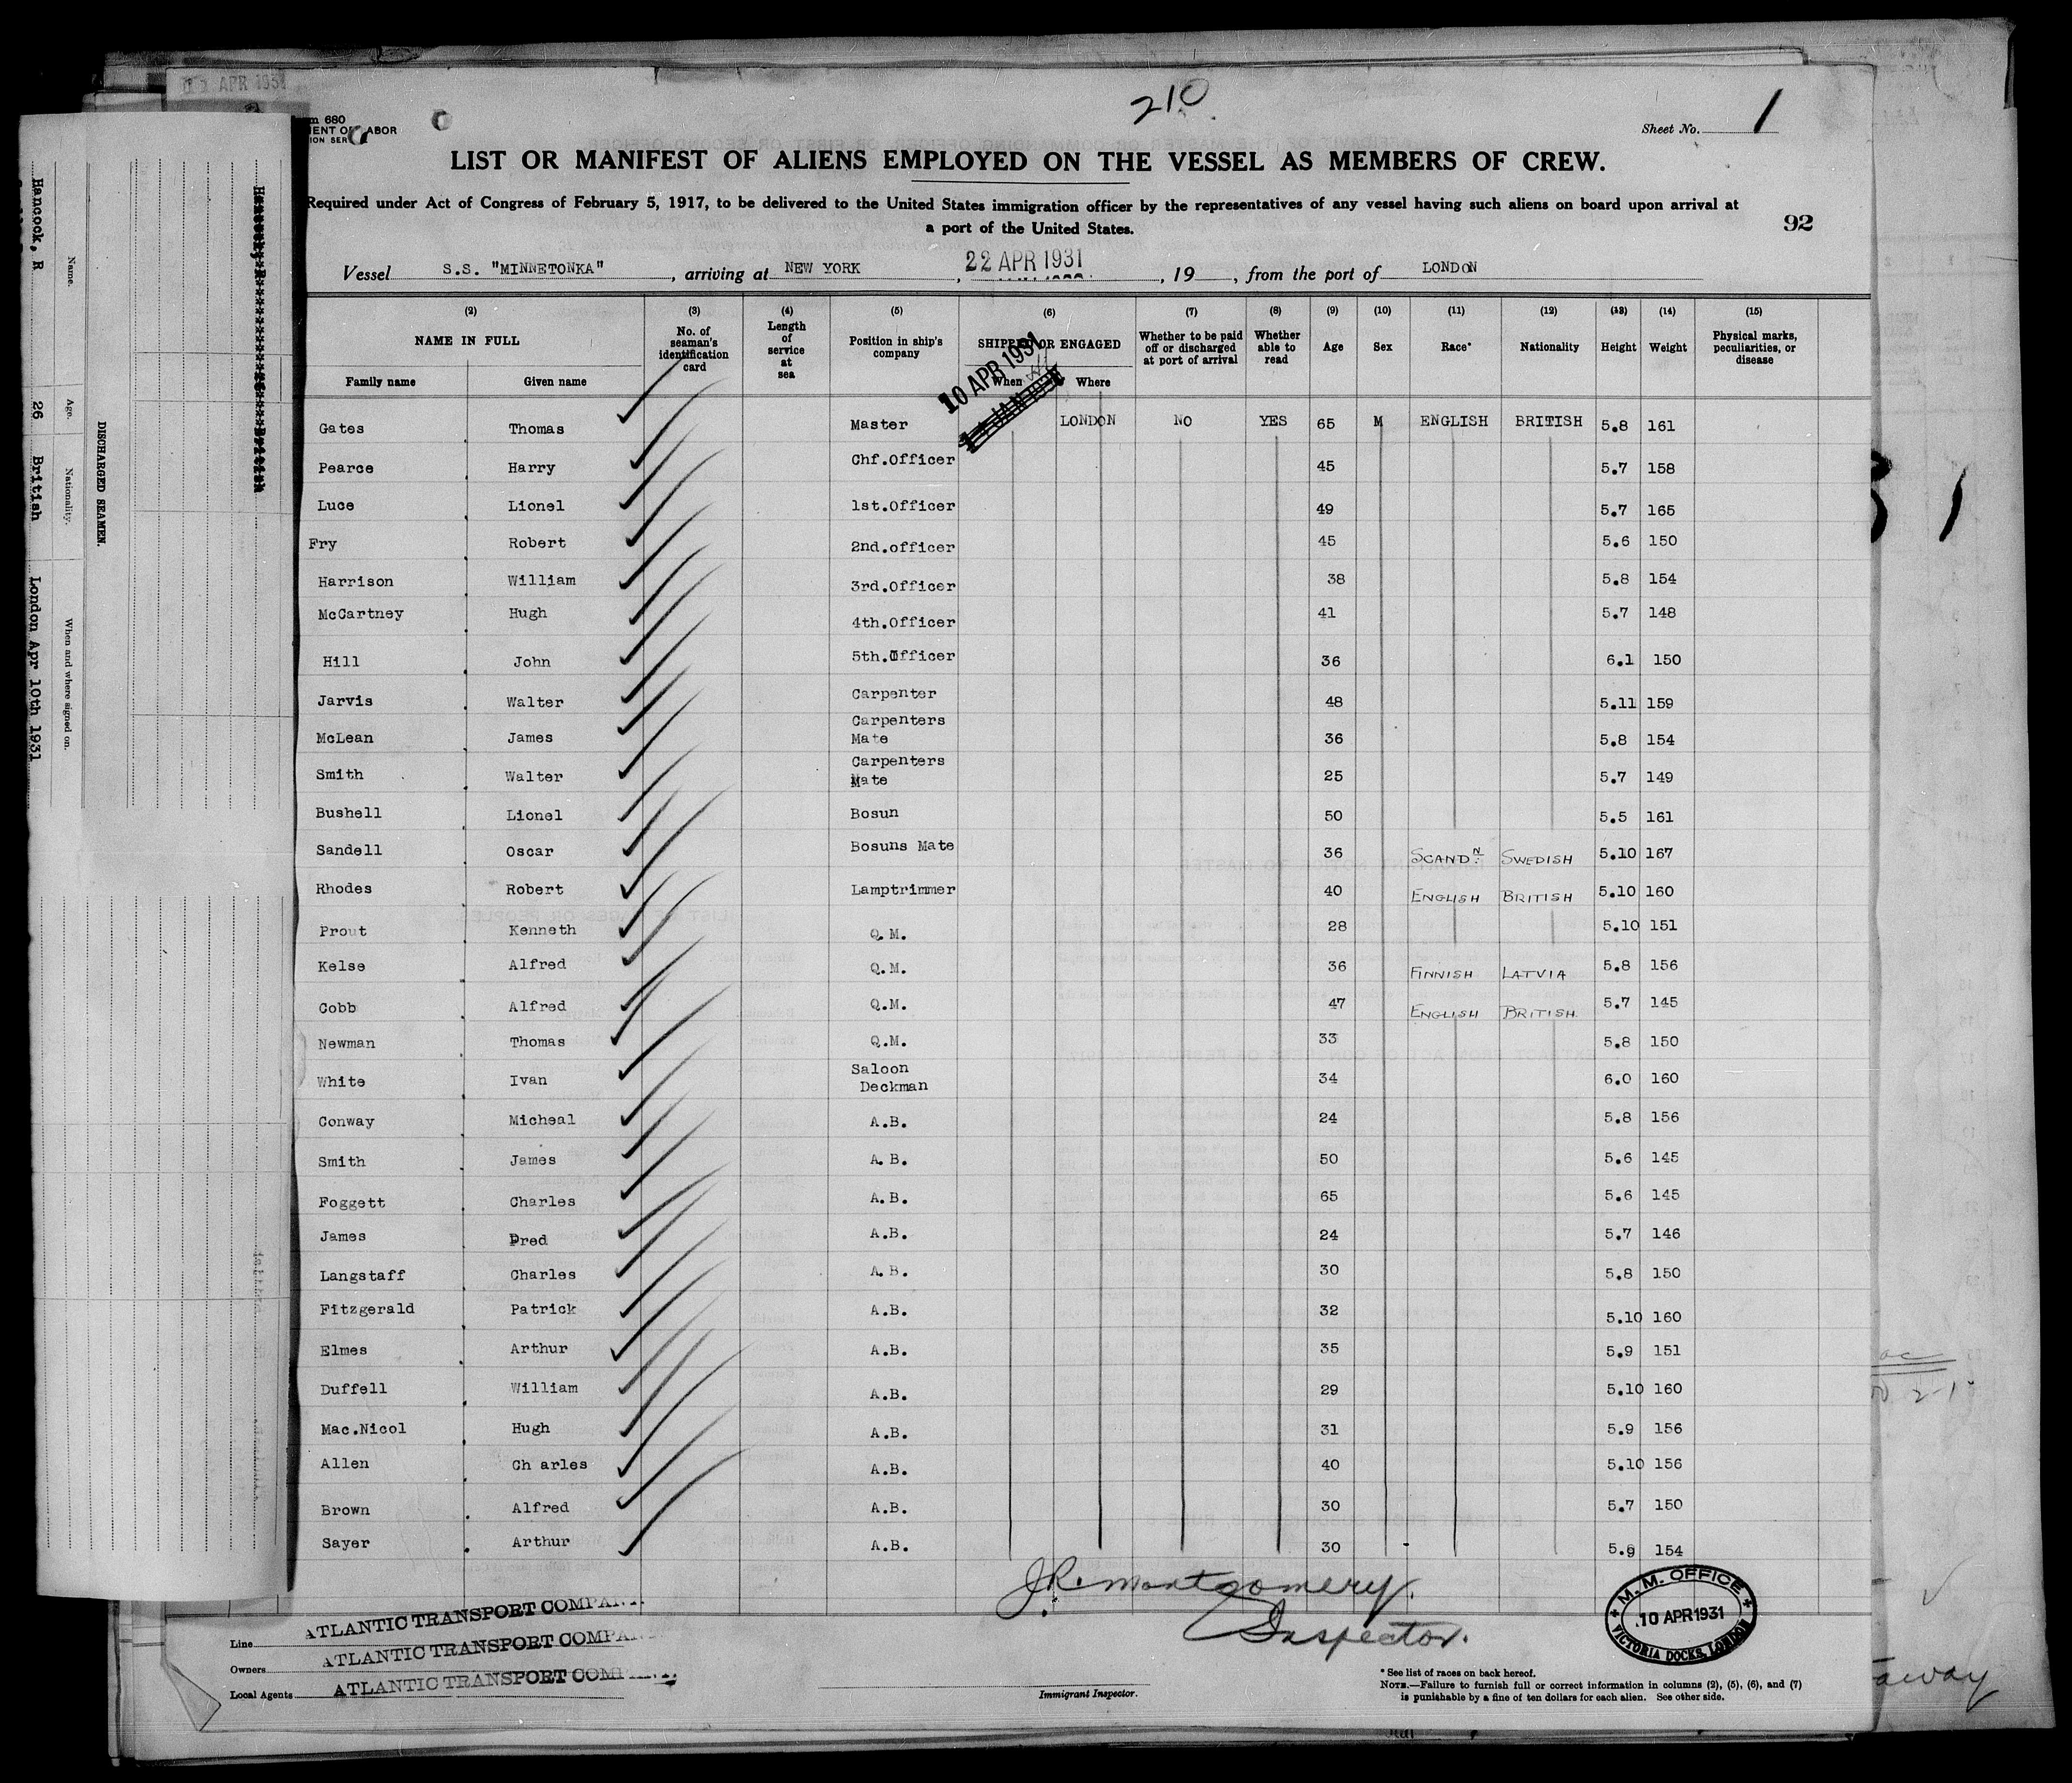 210
Sheet No. 1
LIST OR MANIFEST OF ALIENS EMPLOYED ON THE VESSEL AS MEMBERS OF CREW.
Required under Act of Congress of February 5, 1917, to be delivered to the United States immigration officer by the representatives of any vessel having such aliens on board upon arrival at
a port of the United States.
92
Vessel S.S. "MINNETONKA", arriving at NEW YORK, 22 APR 1931, 19, from the port of LONDON
(2) (3) (4) (5) (6) (7) (8) (9) (10) (11) (12) (13) (14) (15)
NAME IN FULL
Family name Given name
No. of seaman's identification card
Length of service at sea
Position in ship's company
SHIPPED OR ENGAGED
When Where
Whether to be paid off or discharged at port of arrival
Whether able to read
Age Sex Race* Nationality Height Weight
Physical marks, peculiarities, or disease
10 APR 1931
Gates Thomas Master LONDON NO YES 65 M ENGLISH BRITISH 5.8 161
Pearce Harry Chf.Officer 45 5.7 158
Luce Lionel 1st.Officer 49 5.7 165
Fry Robert 2nd.officer 45 5.6 150
Harrison William 3rd.Officer 38 5.8 154
McCartney Hugh 4th.Officer 41 5.7 148
Hill John 5th.Officer 36 6.1 150
Jarvis Walter Carpenter 48 5.11 159
McLean James Carpenters Mate 36 5.8 154
Smith Walter Carpenters Mate 25 5.7 149
Bushell Lionel Bosun 50 5.5 161
Sandell Oscar Bosuns Mate 36 SCANDN. SWEDISH 5.10 167
Rhodes Robert Lamptrimmer 40 ENGLISH BRITISH 5.10 160
Prout Kenneth Q.M. 28 5.10 151
Kelse Alfred Q.M. 36 FINNISH LATVIA 5.8 156
Cobb Alfred Q.M. 47 ENGLISH BRITISH. 5.7 145
Newman Thomas Q.M. 33 5.8 150
White Ivan Saloon Deckman 34 6.0 160
Conway Micheal A.B. 24 5.8 156
Smith James A.B. 50 5.6 145
Foggett Charles A.B. 65 5.6 145
James Fred A.B. 24 5.7 146
Langstaff Charles A.B. 30 5.8 150
Fitzgerald Patrick A.B. 32 5.10 160
Elmes Arthur A.B. 35 5.9 151
Duffell William A.B. 29 5.10 160
Mac.Nicol Hugh A.B. 31 5.9 156
Allen Ch arles A.B. 40 5.10 156
Brown Alfred A.B. 30 5.7 150
Sayer Arthur A.B. 30 5.9 154
J.R. Montgomery.
Inspector.
Immigrant Inspector.
Line ATLANTIC TRANSPORT COMPANY
Owners ATLANTIC TRANSPORT COMPA
Local Agents ATLANTIC TRANSPORT COM
M. M. OFFICE
10 APR 1931
VICTORIA DOCKS, LONDON
* See list of races on back hereof.
NOTE.—Failure to furnish full or correct information in columns (2), (5), (6), and (7)
is punishable by a fine of ten dollars for each alien. See other side.
DISCHARGED SEAMEN.
Name. Age. Nationality. When and where signed on.
Hancock, R 26 British London Apr 10th 1931